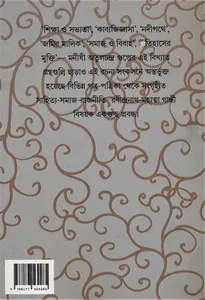 'শিক্ষা ও সভ্যতা', 'কাব্যজিজ্ঞাসা', 'নদীপথে',
'জমির মালিক', 'সমাজ ও বিবাহ', 'ইতিহাসের
মুক্তি'— মনীষী অতুলচন্দ্র গুপ্তের এই বিখ্যাত
গ্রন্থগুলি ছাড়াও এই রচনা সংকলনে অন্তর্ভুক্ত
হয়েছে-বিভিন্ন পত্র-পত্রিকা থেকে সংগৃহীত
সাহিত্য-সমাজ-রাজনীতি- রবীন্দ্রনাথ-মহাত্মা গান্ধী
বিষয়ক একগুচ্ছ প্রবন্ধ।